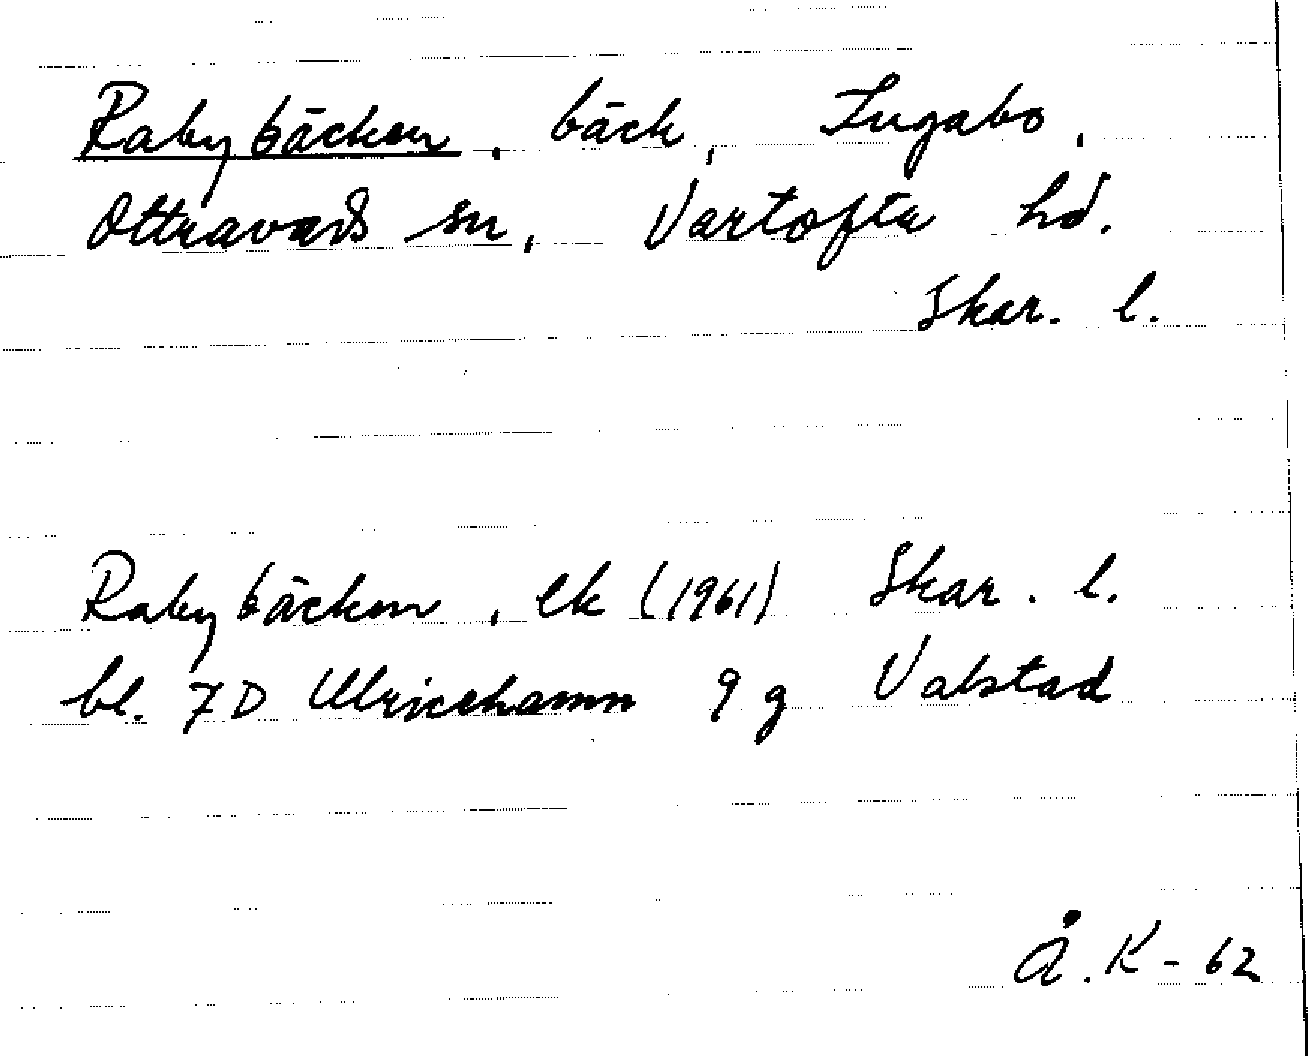 Rabybäcken, bäck, Ingabo,
Ottravads sn, Vartofta hd.
Skar. l.
Rabybäcken, ek (1961) Skar. l.
bl. 7D Ulricehamn 9 g Valstad
Å.K - 62